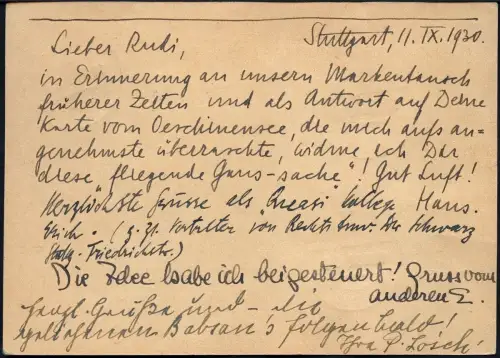 Stuttgart, 11. IX. 1930.
Lieber Rudi,
in Erinnerung an unsern Markentausch
früherer Zeiten und als Antwort auf Deine
Karte vom Oeschinensee, die mich aufs an-
genehmste überraschte, widme ich Dir
diese fliegende Ganz-sache"! Gut Luft!
Herzlichste Grüsse als "Quasi" Collega Hans.
Erich. (z. Zt. Vertreter von Rechtsanw. Dr. Schwarz
Stuttg. Friedrichstr.)
Die Idee habe ich beigesteuert! Gruss vom
anderen E.
herzl. Grüße und – die
folgen bald!
Ihre P. Losch!